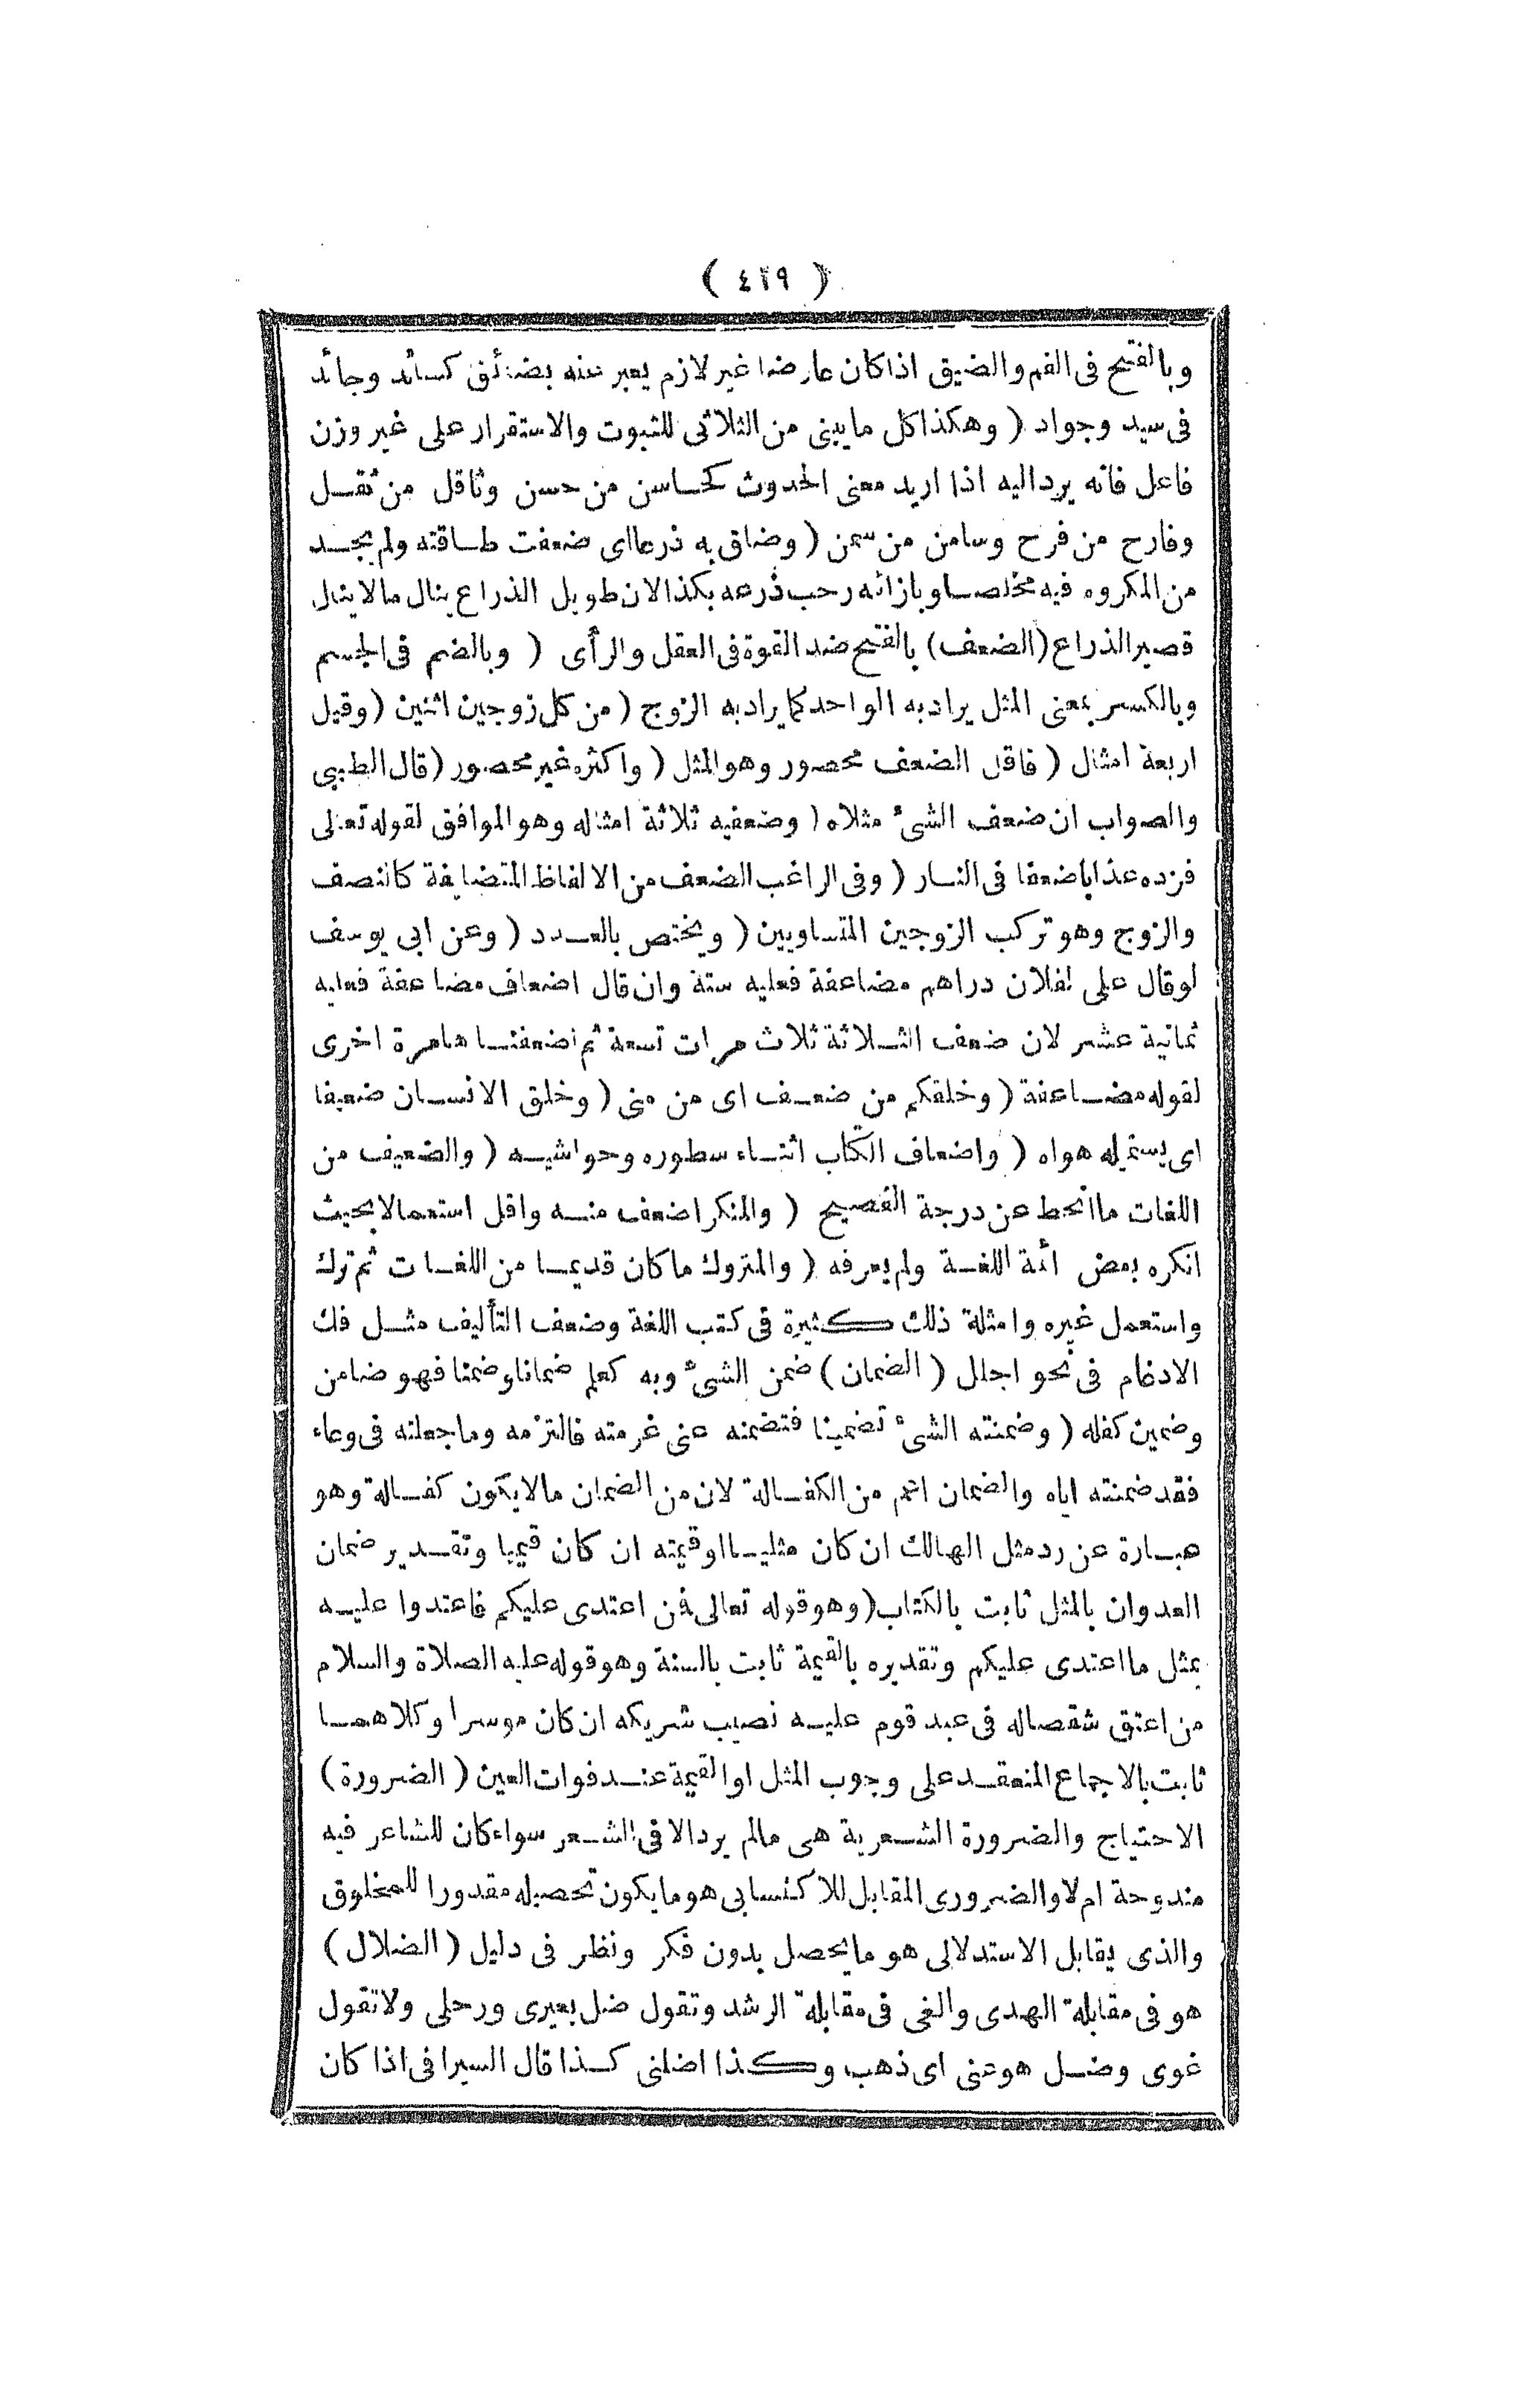 ( ٤٢٩ )
وبالفتح فى الغم والضيق اذا كان عارضا غير لازم يعبر عنه بضائق كسائد وجائد
فى سيد وجواد ( وهكذا كل ما يبنى من الثلاثى للثبوت والاستقرار على غير وزن
فاعل فانه يرد اليه اذا اريد معنى الحدوث كحاسن من حسن وثاقل من ثقل
وفارح من فرح وسامن من سمن ( وضاق به ذرعا اى ضعفت طاقته ولم يجد
من المكروه فيه مخلصا وبازائه رحب ذرعه بكذا لان طويل الذراع ينال مالا ينال
قصير الذراع (الضعف) بالفتح ضد القوة فى العقل والرأى ( وبالضم فى الجسم
وبالكسر بمعنى المثل يراد به الواحد كما يراد به الزوج ( من كل زوجين اثنين ( وقيل
اربعة امثال ( فاقل الضعف محصور وهو المثل ( واكثره غير محصور (قال الطيبى
والصواب ان ضعف الشئ مثلاه ( وضعفيه ثلاثة امثاله وهو الموافق لقوله تعالى
فزده عذابا ضعفا فى النار ( وفى الراغب الضعف من الالفاظ المتضايفة كالنصف
والزوج وهو تركب الزوجين المتساويين ( ويختص بالعدد ( وعن ابى يوسف
لو قال على لفلان دراهم مضاعفة فعليه ستة وان قال اضعاف مضاعفة فعليه
ثمانية عشر لان ضعف الثلاثة ثلاث مرات تسعة ثم اضعفناها مرة اخرى
لقوله مضاعفة ( وخلقكم من ضعف اى من منى ( وخلق الانسان ضعيفا
اى يستميله هواه ( واضعاف الكتاب اثناء سطوره وحواشيه ( والضعيف من
اللغات ما انحط عن درجة الفصيح ( والمنكر اضعف منه واقل استعمالا بحيث
انكره بعض ائمة اللغة ولم يعرفه ( والمتروك ما كان قديما من اللغات ثم ترك
واستعمل غيره وامثلة ذلك كثيرة فى كتب اللغة وضعف التأليف مثل فك
الادغام فى نحو اجلل ( الضمان ) ضمن الشئ وبه كعلم ضمانا وضمنا فهو ضامن
وضمين كفله ( وضمنته الشئ تضمينا فتضمنه عنى غرمته فالتزمه وما جعلته فى وعاء
فقد ضمنته اياه والضمان اعم من الكفالة لان من الضمان مالا يكون كفالة وهو
عبارة عن رد مثل الهالك ان كان مثليا او قيمته ان كان قيميا وتقدير ضمان
العدوان بالمثل ثابت بالكتاب (وهو قوله تعالى فمن اعتدى عليكم فاعتدوا عليه
بمثل ما اعتدى عليكم وتقديره بالقيمة ثابت بالسنة وهو قوله عليه الصلاة والسلام
من اعتق شقصا له فى عبد قوم عليه نصيب شريكه ان كان موسرا وكلاهما
ثابت بالاجماع المنعقد على وجوب المثل او القيمة عند فوات العين ( الضرورة )
الاحتياج والضرورة الشعرية هى مالم يرد الا فى الشعر سواء كان للشاعر فيه
مندوحة ام لا والضرورى المقابل للاكتسابى هو ما يكون تحصيله مقدورا للمخلوق
والذى يقابل الاستدلالى هو ما يحصل بدون فكر ونظر فى دليل ( الضلال )
هو فى مقابلة الهدى والغى فى مقابلة الرشد وتقول ضل بعيرى ورحلى ولا تقول
غوى وضل هو عنى اى ذهب وكذا اضلنى كذا قال السيرافى اذا كان